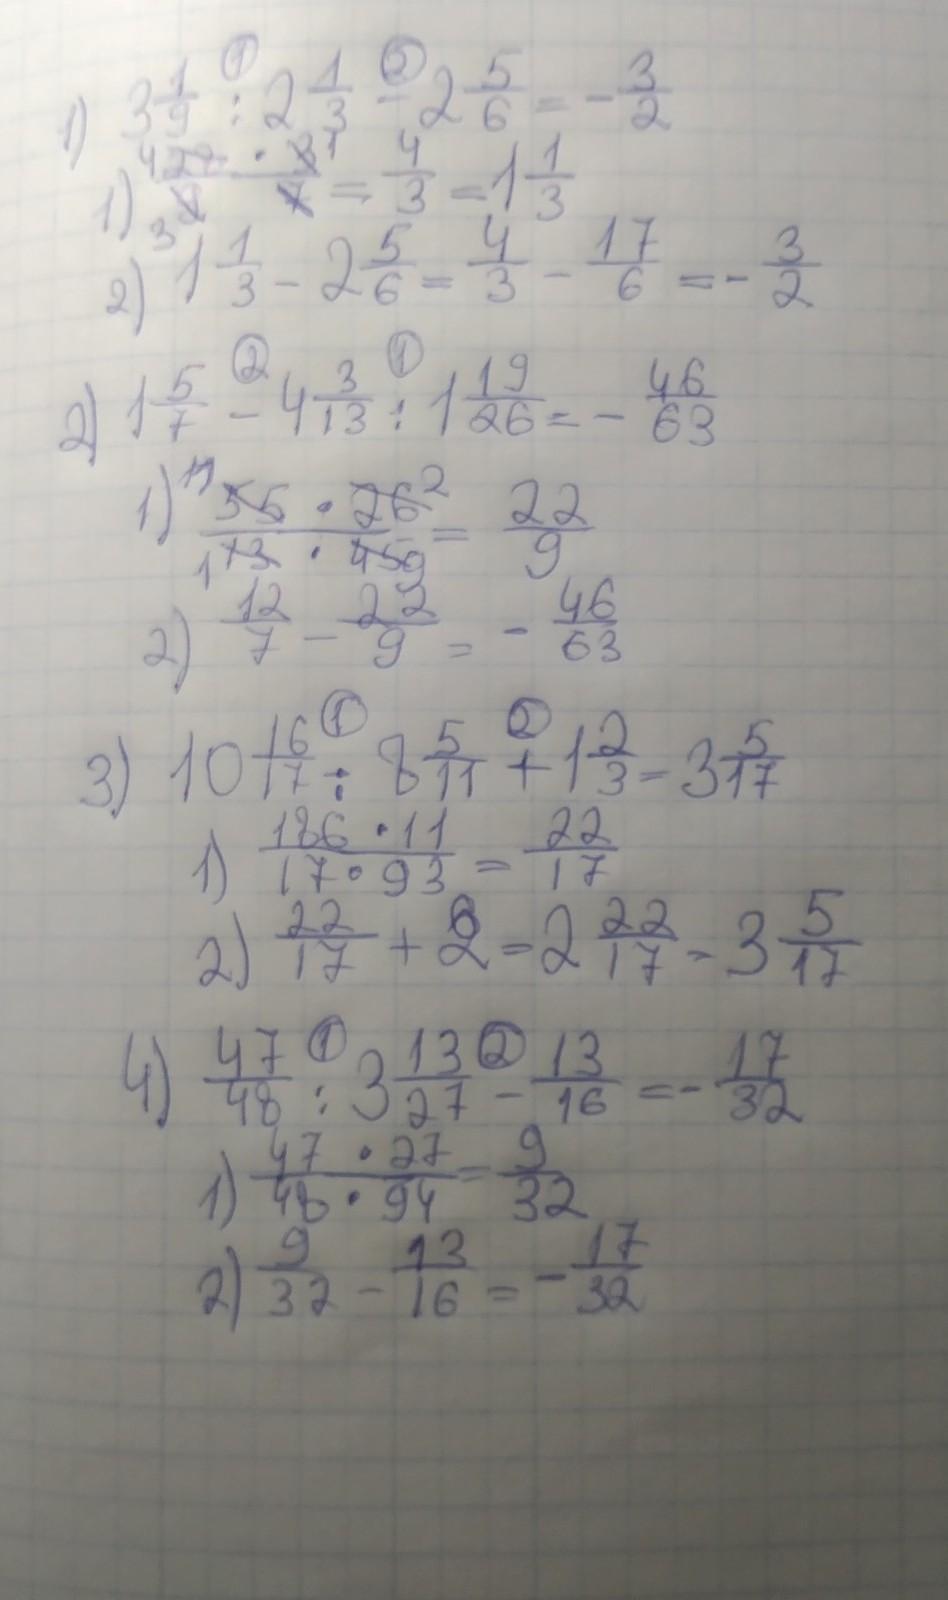 1) 3 1/9 : 2 1/3 - 2 5/6 = - 3/2
1) 28 · 3 / 9 · 7 = 4/3 = 1 1/3
2) 1 1/3 - 2 5/6 = 4/3 - 17/6 = - 3/2
2) 1 5/7 - 4 3/13 : 1 19/26 = - 46/63
1) 55 · 26 / 13 · 45 = 22/9
2) 12/7 - 22/9 = - 46/63
3) 10 16/17 : 8 5/11 + 1 2/3 = 3 5/17
1) 186 · 11 / 17 · 93 = 22/17
2) 22/17 + 2 = 2 22/17 = 3 5/17
4) 47/48 : 3 13/27 - 13/16 = - 17/32
1) 47 · 27 / 48 · 94 = 9/32
2) 9/32 - 13/16 = - 17/32